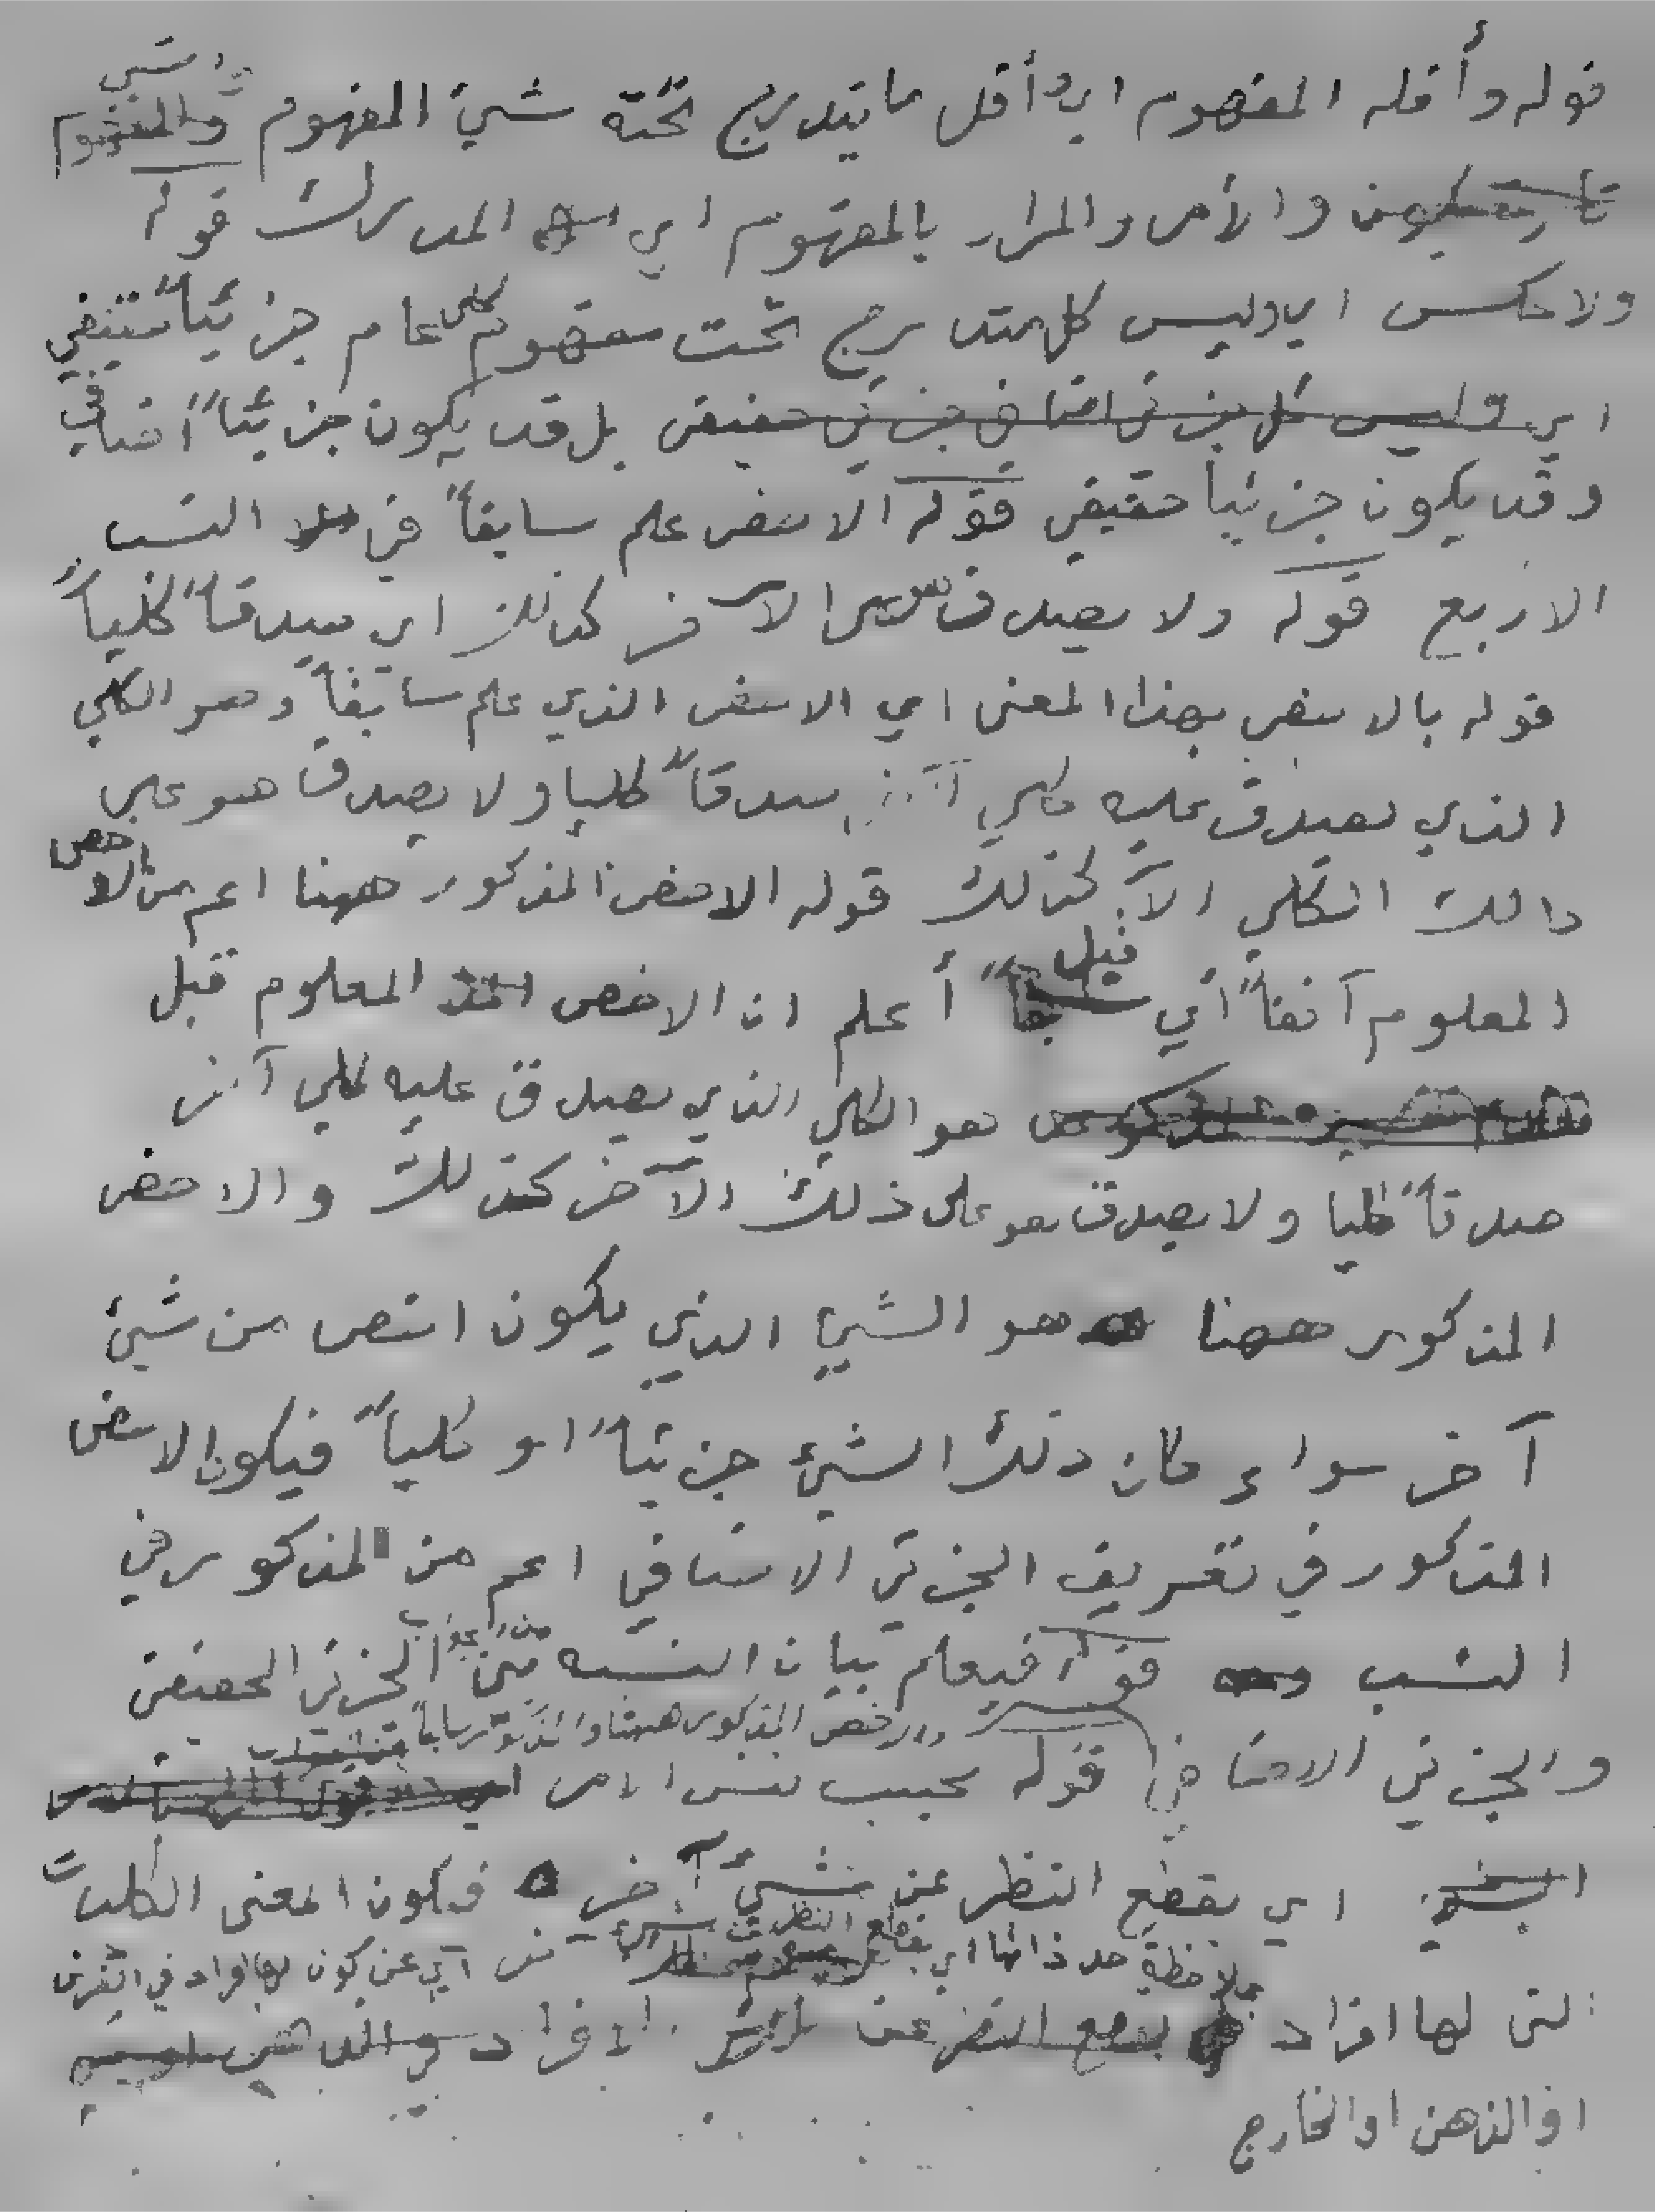 والشيء
قوله وأقله المفهوم اي وأقل ما يندرج تحته شيء المفهوم والمفهوم
والأمر والمراد بالمفهوم اي المدرك قوله
ولا عكس اي وليس كل مندرج تحت مفهوم كلي عام جزئياً حقيقي
اي وليس كل جزئي اضافي جزئي حقيقي بل قد يكون جزئياً اضافي
وقد يكون جزئيا حقيقي قوله الاخص علم سابقاً في النسب
الاربع قوله ولا يصدق على الآخر كذلك اي صدقاً كلياً
قوله بالاخص بهذا المعنى اي الاخص الذي علم سابقاً وهو الكلي
الذي يصدق عليه كلي آخر صدقاً كليا ولا يصدق هو على
ذالك الكلي الآخر كذلك قوله الاخص المذكور ههنا اعم من الاخص
المعلوم آنفاً أي قبل أعلم ان الاخص المعلوم قبل
هو الكلي الذي يصدق عليه كلي آخر
صدقاً كليا ولا يصدق هو على ذلك الآخر كذلك والاخص
المذكور ههنا هو الشيء الذي يكون اخص من شيء
آخر سواء كان ذلك الشيء جزئياً او كلياً فيكون الاخص
المذكور في تعريف الجزئي الاضافي اعم من المذكور في
النسب قوله فيعلم بيان النسبه من الجواب الجزئي الحقيقي
والاخص المذكور ههنا والمذكور سابقاً
والجزئي الاضافي قوله بحسب نفس الامر
اي بقطع النظر عن شيء آخر فيكون المعنى الكليات
بملاحظة حد ذاتها اي بقطع النظر عن شيء آخر اي عن كون لها افراد في الفرض
التي لها افراد بقطع النظر عن الافراد في الذهن
او الذهن او الخارج